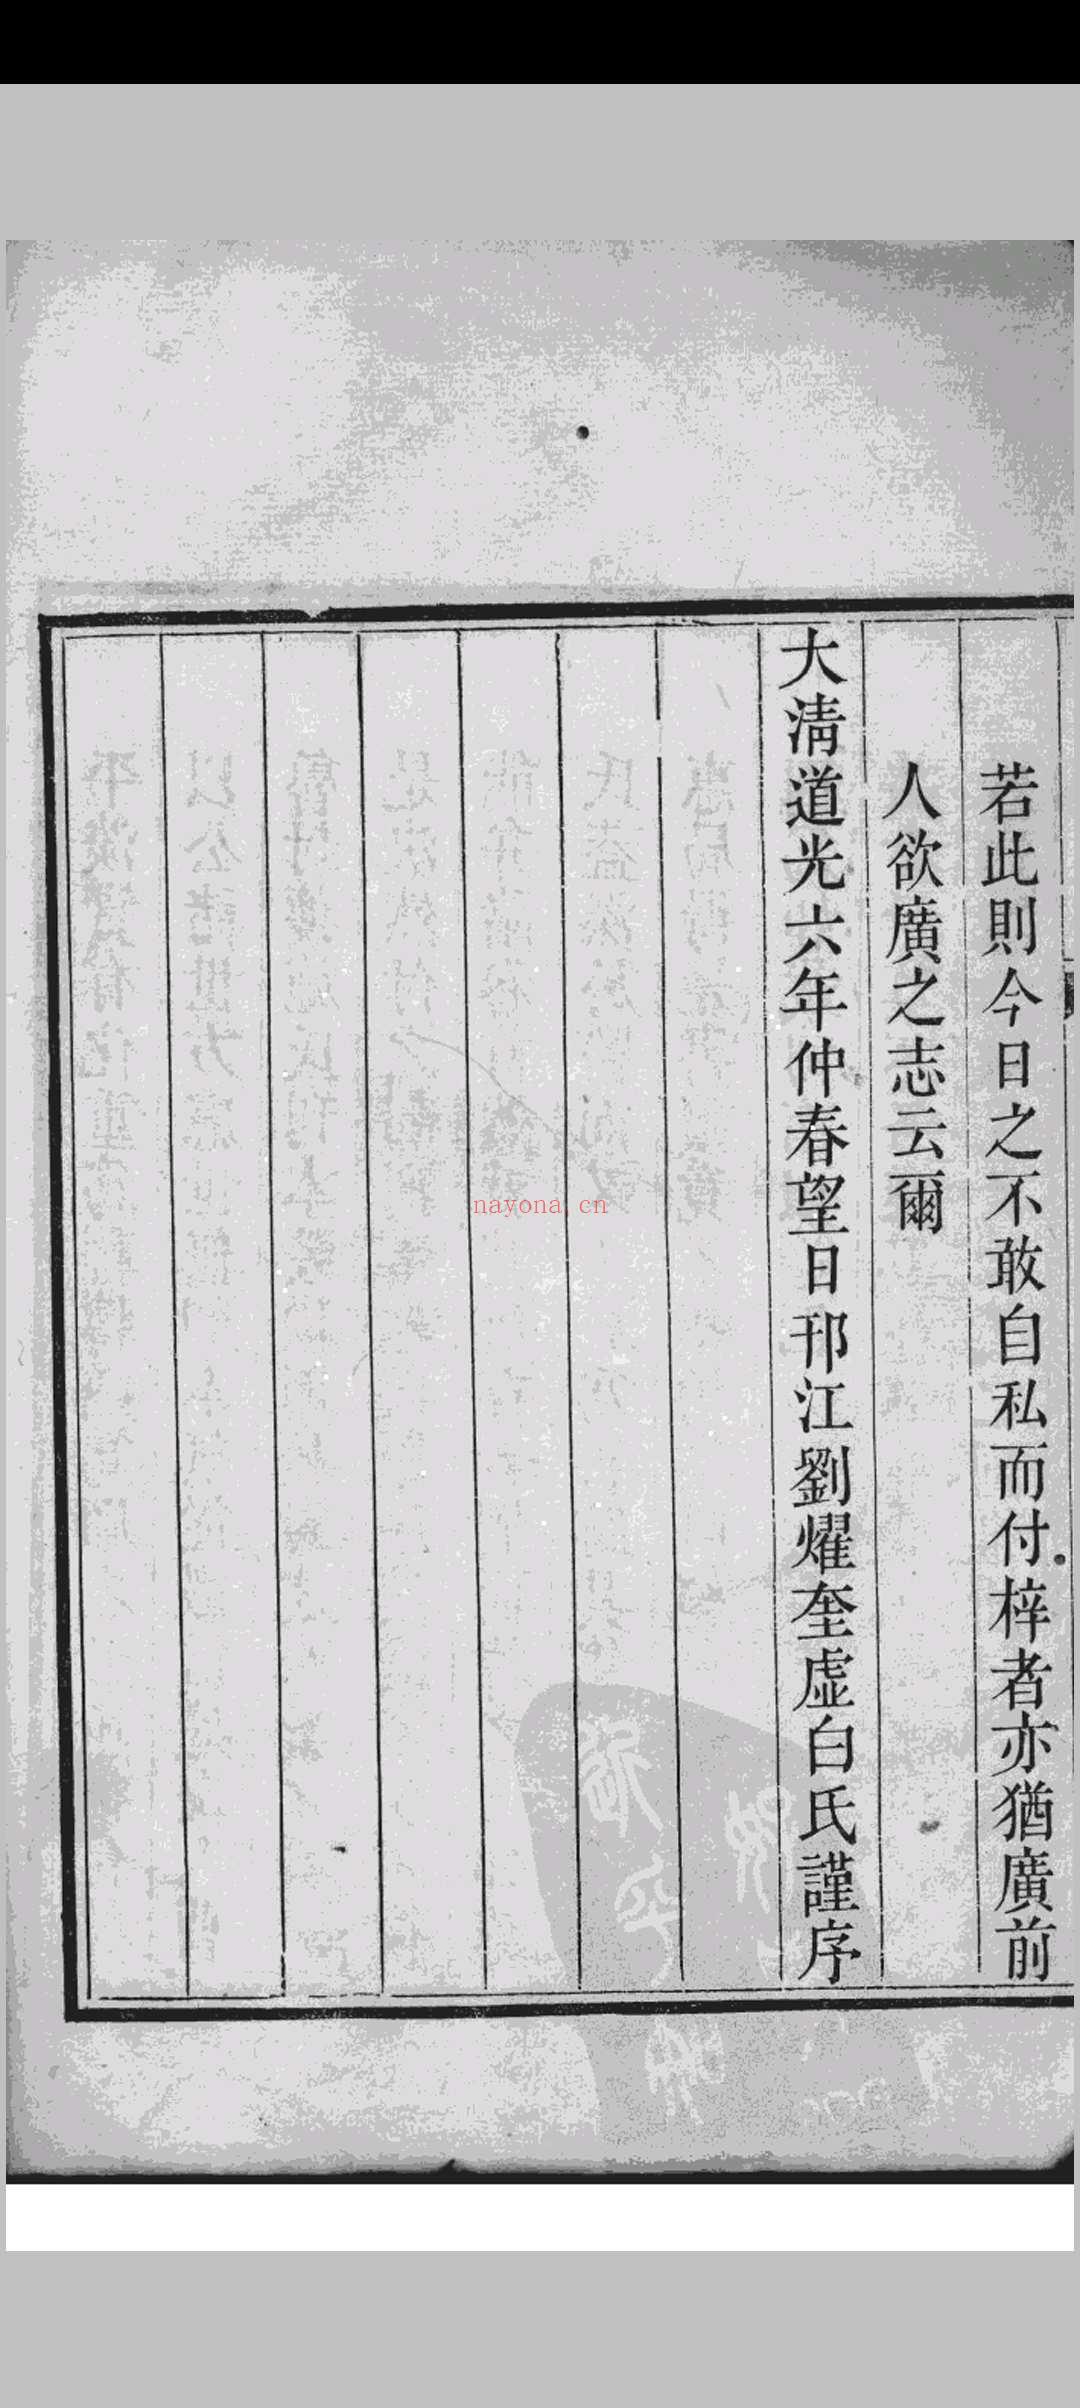 若此則今日之不敢自私而付梓者亦猶廣前
人欲廣之志云爾
大清道光六年仲春望日邗江劉燿奎虛白氏謹序
nayona.cn